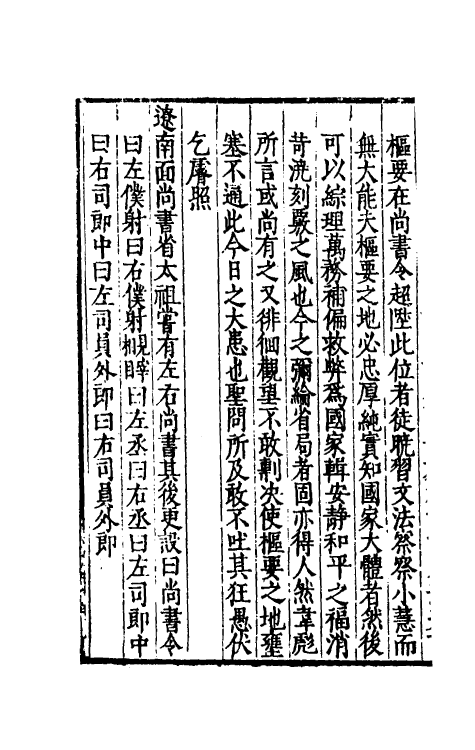 樞要在尚書令超陞此位者徒曉習文法然察小慧而
無大能夫樞要之地必忠厚純實知國家大體者然後
可以綜理萬務補偏救弊爲國家輯安静和平之福消
苛澆刻覈之風也今之彌綸省局者固亦得人然韋彪
所言或尚有之又徘徊觀望不敢剸决使樞要之地壅
塞不通此今日之大患也聖問所及敢不吐其狂愚伏
乞㢘照
遼南面尚書省太祖嘗有左右尚書其後更設曰尚書令
曰左僕射曰右僕射曰左丞曰右丞曰左司郎中
曰右司郎中曰左司員外郎曰右司員外郎